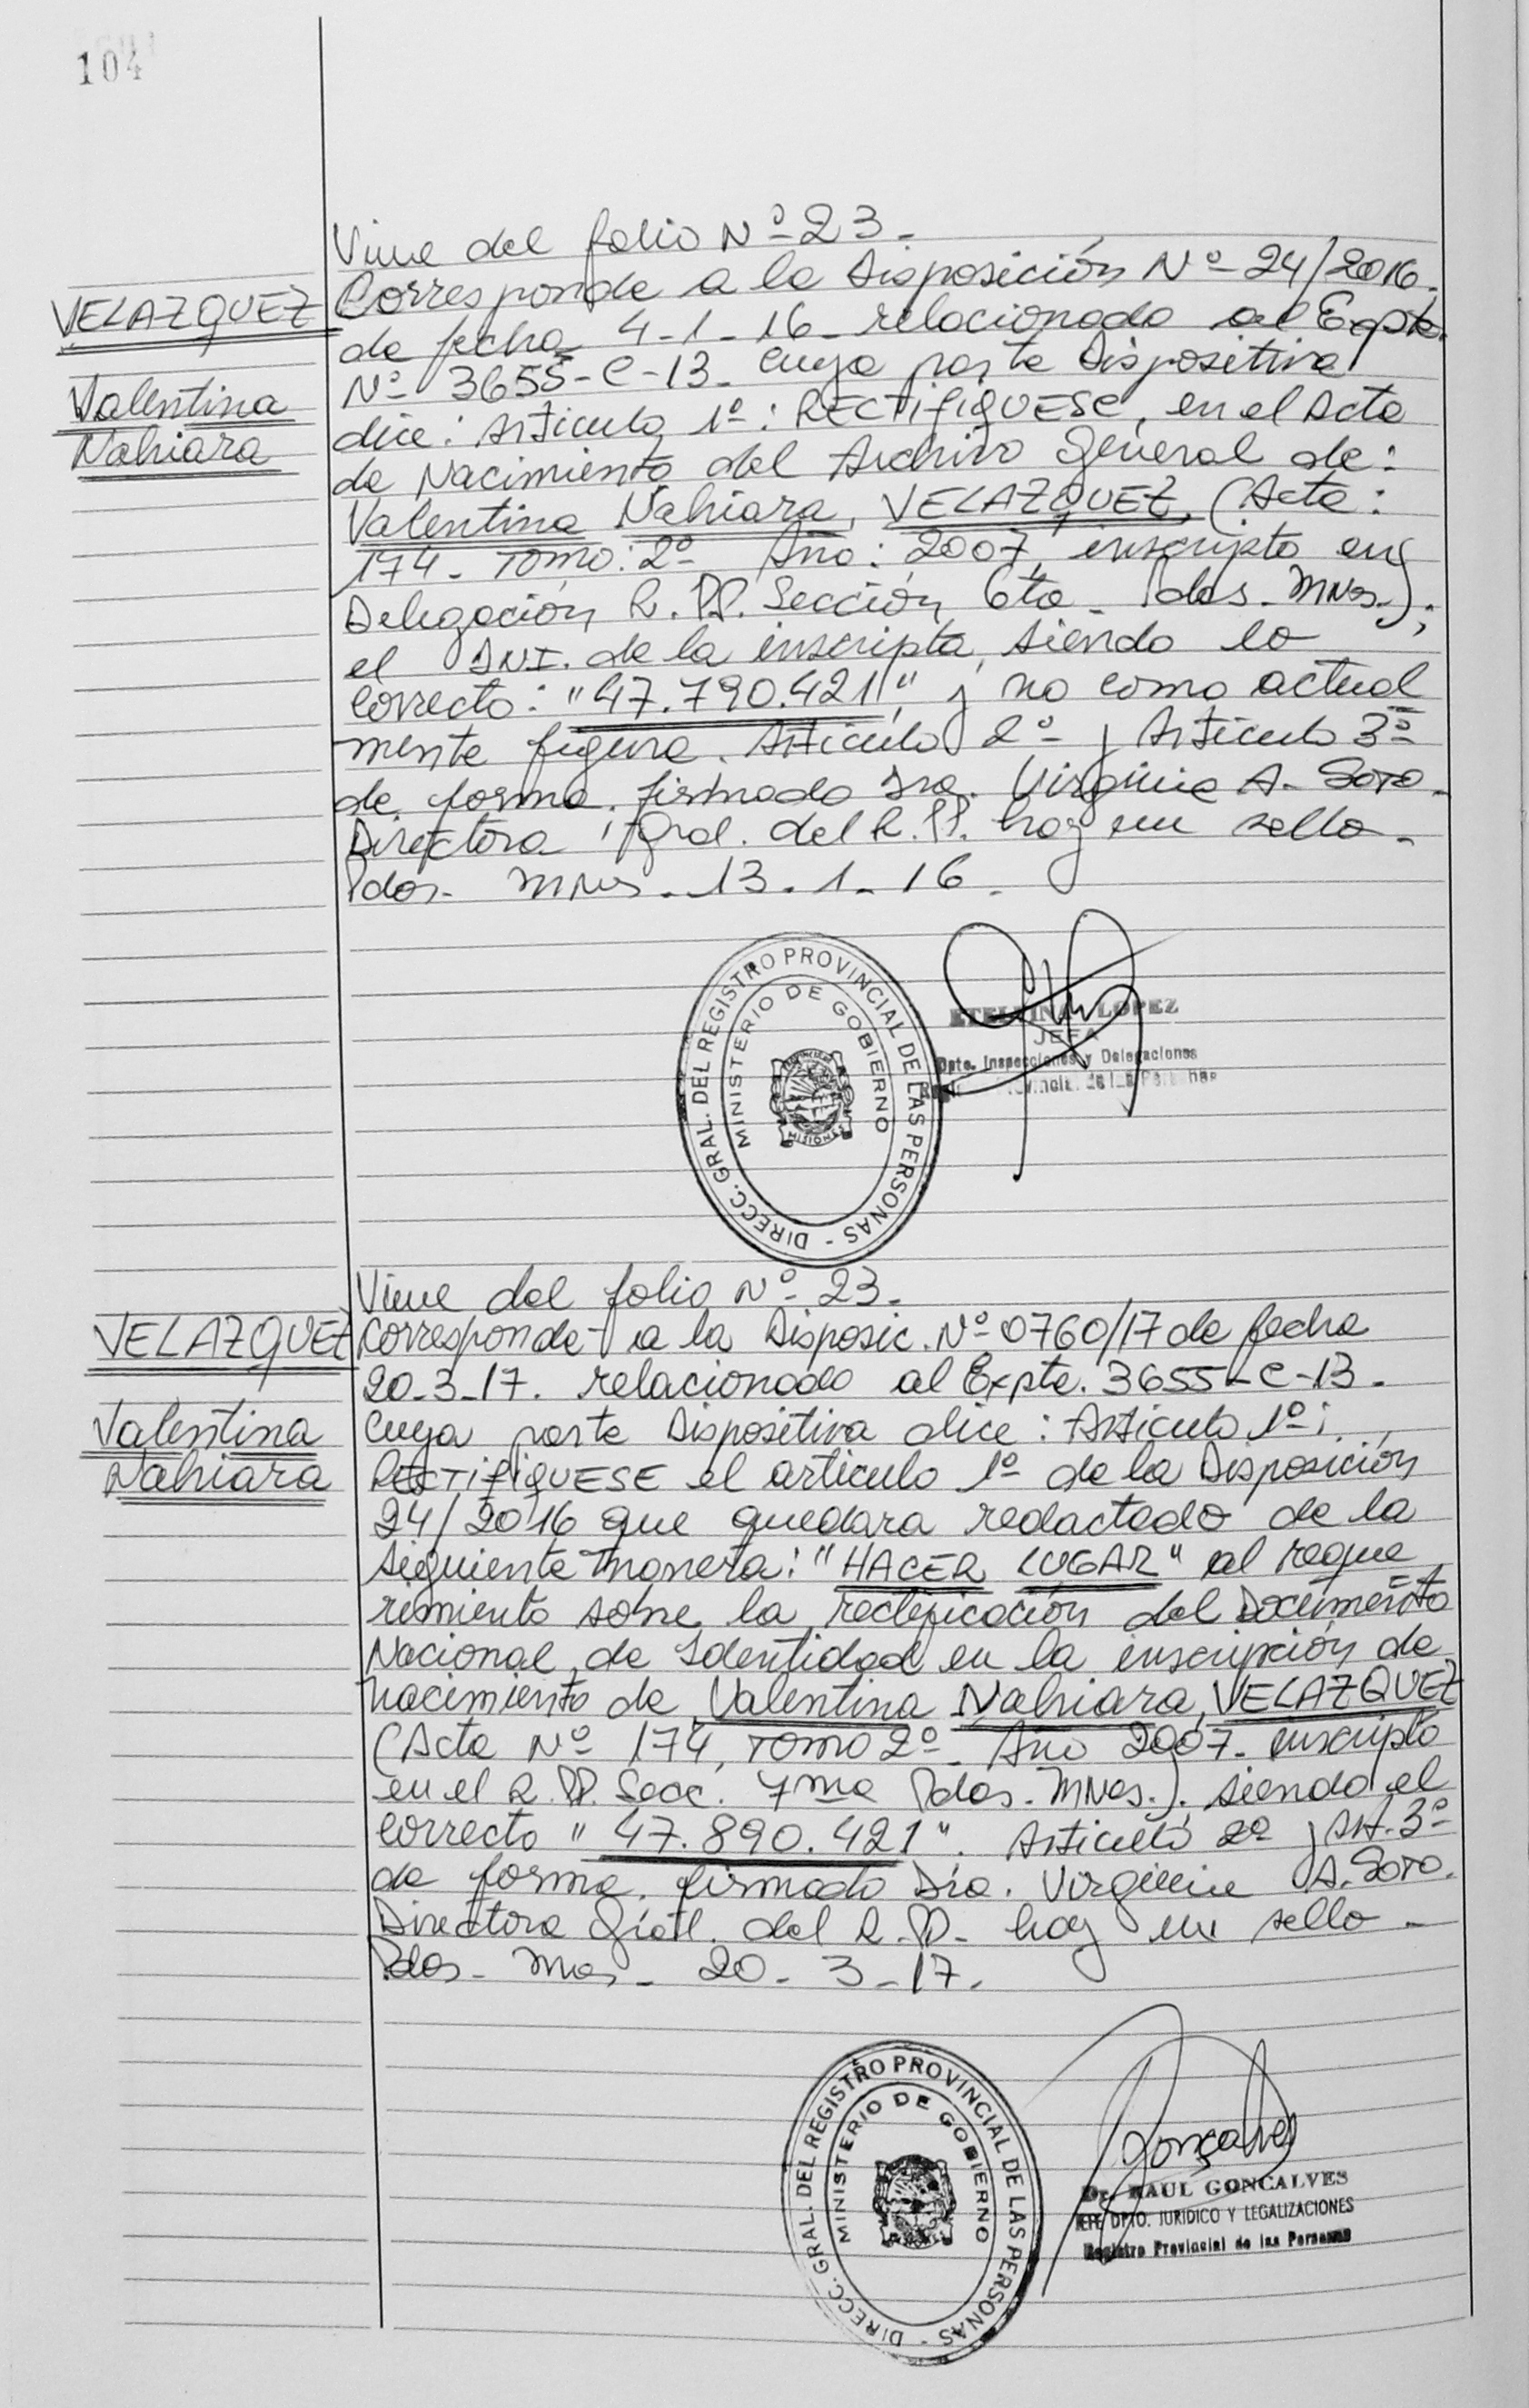 104
Viene del folio Nº 23.
VELAZQUEZ
Valentina
Nahiara
Corresponde a la Disposición Nº 24/2016.
de fecha 4-1-16 relacionado al Expte.
Nº 3655-C-13. cuya parte Dispositiva
dice: Articulo 1º: RECTIFIQUESE, en el Acta
de Nacimiento del Archivo General de:
Valentina Nahiara, VELAZQUEZ, (Acta:
174- Tomo: 2º- Año: 2007, inscripta en
Delegación R.PP. Sección 6ta - Pdas. MNes.);
el DNI. de la inscripta, siendo lo
correcto: "47.790.421", y no como actual
mente figura. Articulo 2º y Articulo 3º
de forma. firmado Dra. Virginia A. Soto.
Directora Gral. del R.PP. hay un sello.
Pdas. MNes. 13.1.16.
DIRECC. GRAL. DEL REGISTRO PROVINCIAL DE LAS PERSONAS -
MINISTERIO DE GOBIERNO
MISIONES
LOPEZ
JEFA
Dpto. Inspecciones y Delegaciones
Viene del folio Nº 23.
VELAZQUEZ
Valentina
Nahiara
Corresponde a la Disposic. Nº 0760/17 de fecha
20-3-17. relacionado al Expte. 3655-C-13.
Cuya parte Dispositiva dice: Articulo 1º:
RECTIFIQUESE el articulo 1º de la Disposición
24/2016 que quedara redactado de la
siguiente manera: "HACER LUGAR" al reque
rimiento sobre la rectificación del Documento
Nacional de Identidad en la inscripción de
nacimiento de Valentina Nahiara, VELAZQUEZ
(Acta Nº 174, TOMO 2º. Año 2007. inscripta
en el R.PP. Secc. 7ma Pdas. MNes.). siendo el
correcto "47.890.421". Articulo 2º y Art. 3º
de forma. firmado Dra. Virginia A. Soto.
Directora Gral. del R.PP. hay un sello.
Pdas. Mnes. 20-3-17.
DIRECC. GRAL. DEL REGISTRO PROVINCIAL DE LAS PERSONAS -
MINISTERIO DE GOBIERNO
Gonçalves
Dr. RAUL GONCALVES
DPTO. JURIDICO Y LEGALIZACIONES
Registro Provincial de las Personas